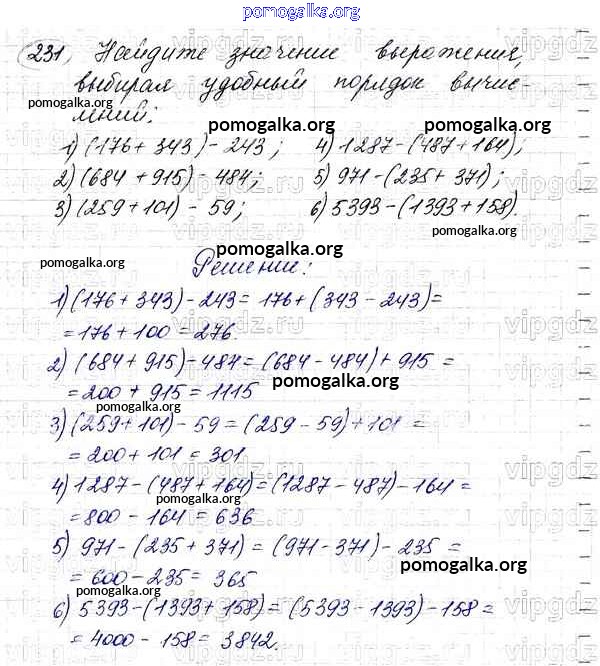 pomogalka.org
231. Найдите значение выражения,
выбирая удобный порядок вычис-
pomogalka.org
лений:
pomogalka.org
1) (176 + 343) - 243; 4) 1287 - (487 + 164);
2) (684 + 915) - 484; 5) 971 - (235 + 371);
3) (259 + 101) - 59; 6) 5393 - (1393 + 158).
pomogalka.org
pomogalka.org
pomogalka.org
Решение:
1) (176 + 343) - 243 = 176 + (343 - 243) =
= 176 + 100 = 276.
pomogalka.org
2) (684 + 915) - 484 = (684 - 484) + 915 =
= 200 + 915 = 1115
pomogalka.org
pomogalka.org
3) (259 + 101) - 59 = (259 - 59) + 101 =
= 200 + 101 = 301
4) 1287 - (487 + 164) = (1287 - 487) - 164 =
pomogalka.org
= 800 - 164 = 636
5) 971 - (235 + 371) = (971 - 371) - 235 =
= 600 - 235 = 365
pomogalka.org
pomogalka.org
6) 5393 - (1393 + 158) = (5393 - 1393) - 158 =
= 4000 - 158 = 3842.